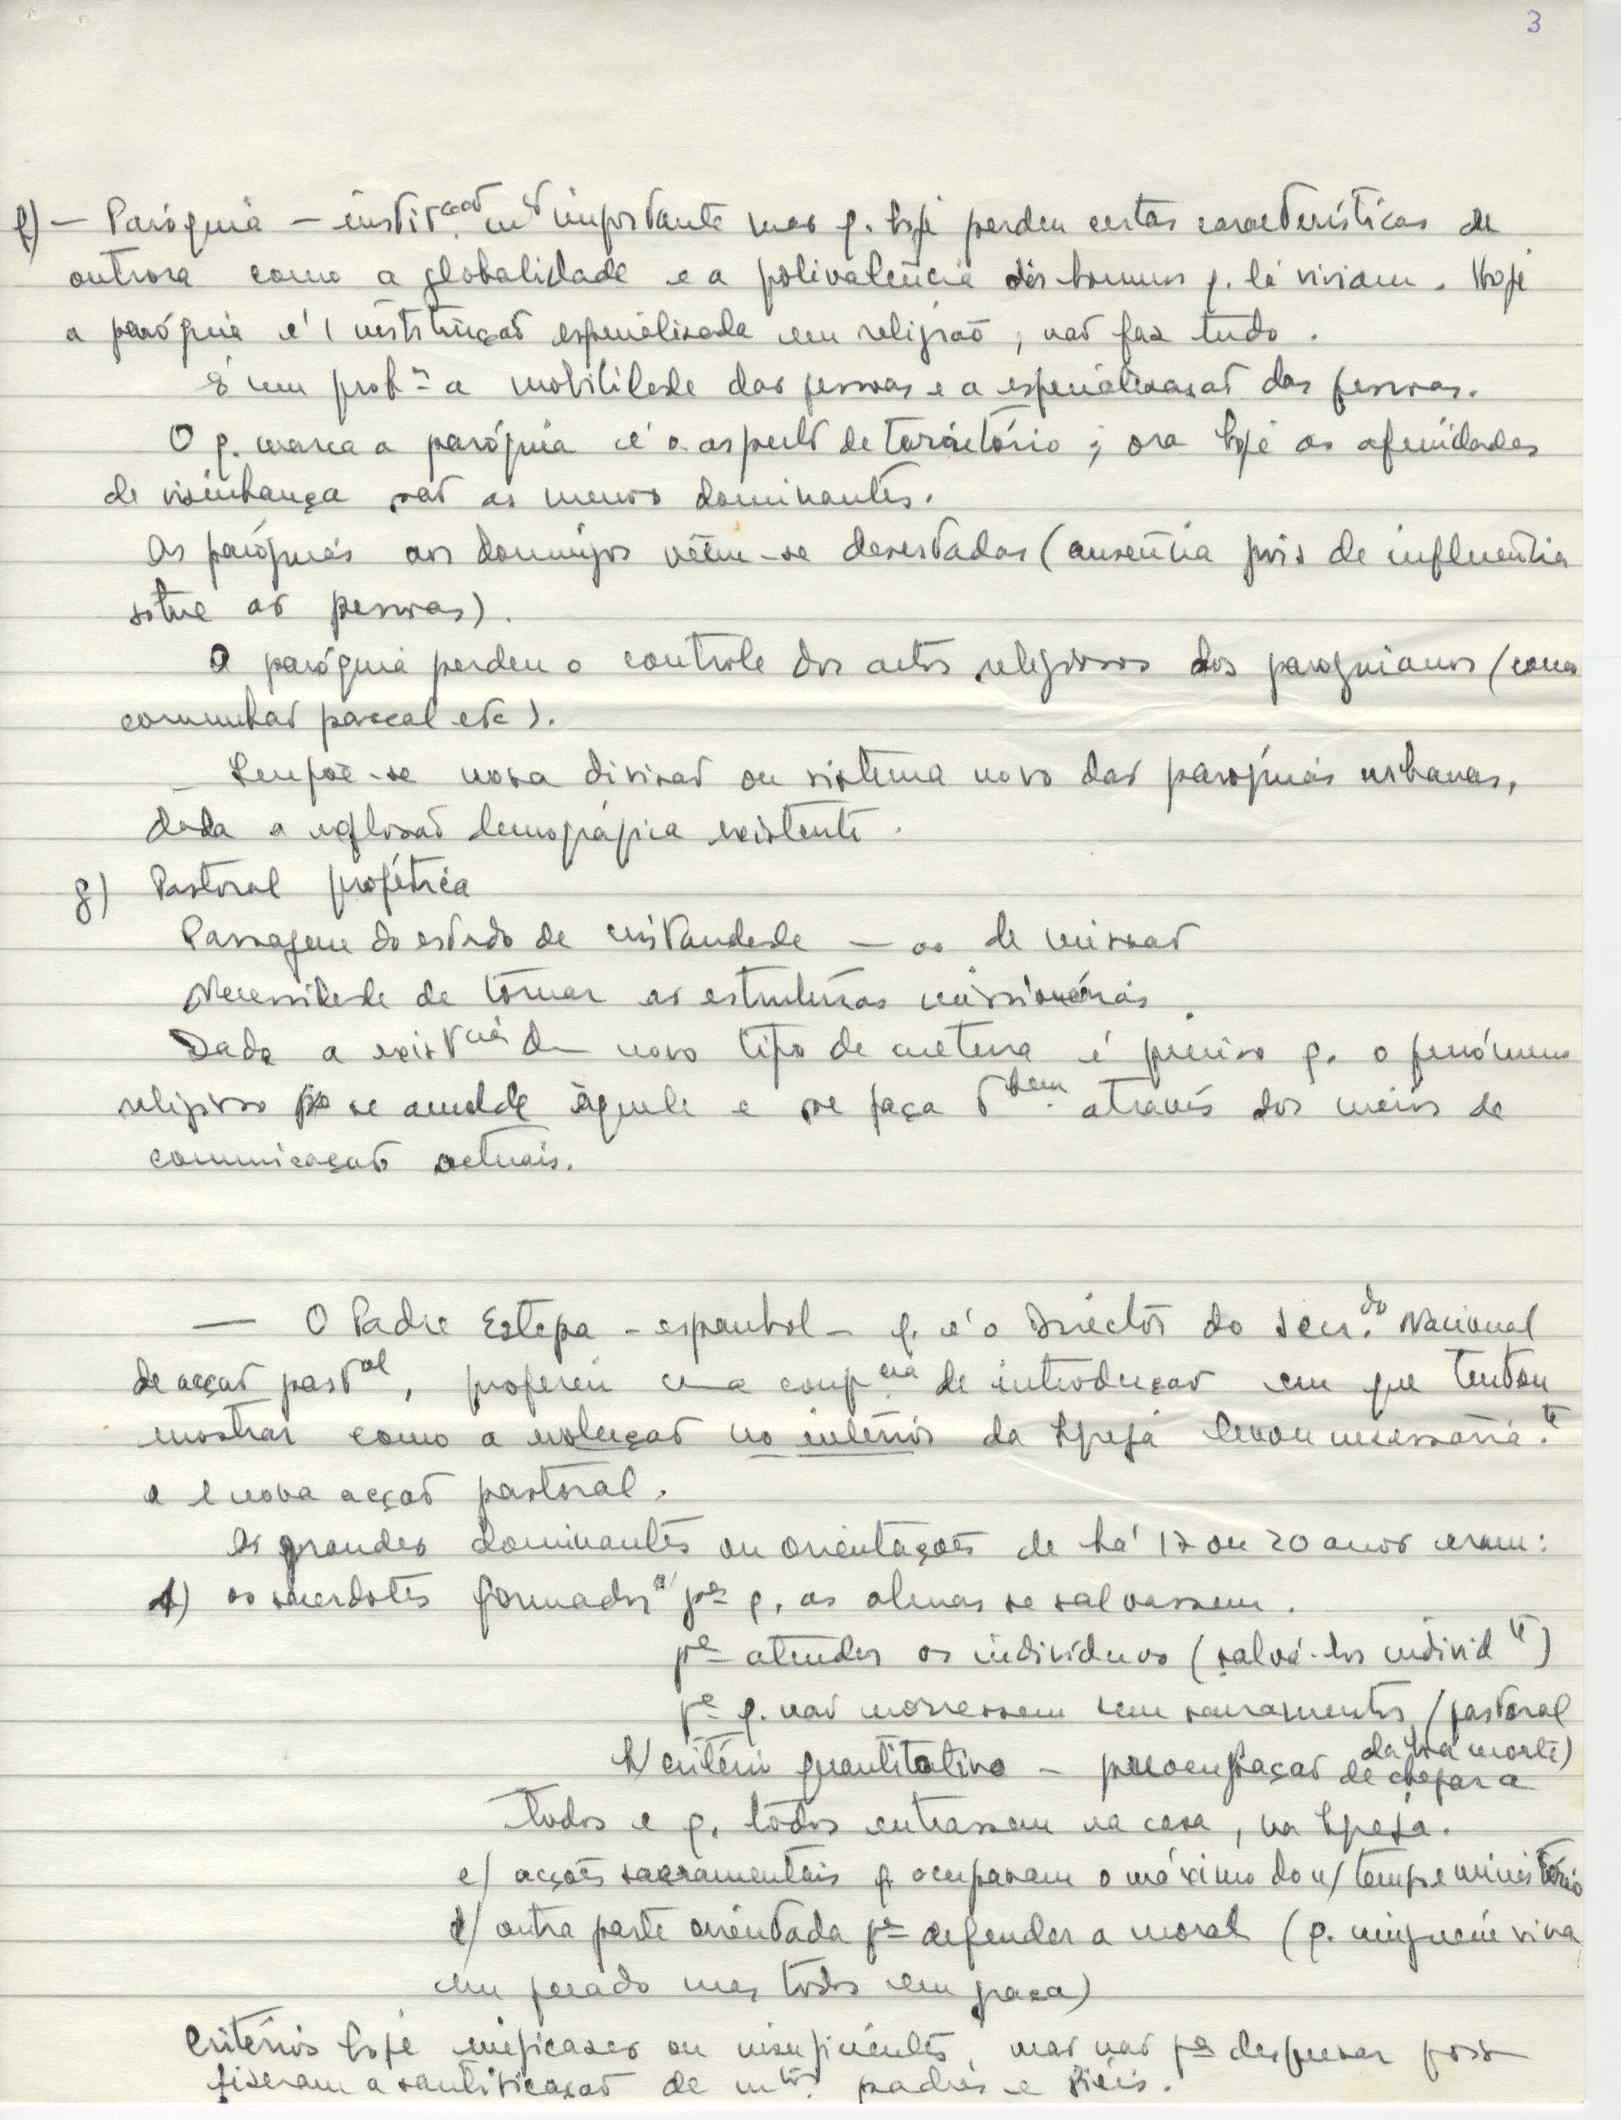 3
f) — Paróquia — instit.ção m.to importante mas q. hoje perdeu certas características de
outrora como a globalidade e a polivalência dos homens q. lá viviam. Hoje
a paróquia é 1 instituição especializada em religião, não faz tudo.
É um prob.ma a mobilidade das pessoas e a especialização das pessoas.
O q. marca a paróquia é o aspecto de território; ora hoje as afinidades
de visinhança são as menos dominantes.
As paróquias aos domingos vêem-se desertadas (ausência pois de influência
sobre as pessoas).
A paróquia perdeu o controle dos actos religiosos dos paroquianos (como
comunhão pascal etc).
Impõe-se nova divisão ou sistema novo das paróquias urbanas,
dada a explosão demográfica existente.
g) Pastoral profética
Passagem do estado de cristandade — ao de missão
Necessidade de tornar as estruturas missionárias.
Dada a exist.ncia de novo tipo de cultura é preciso q. o fenómeno
religioso se amolde àquele e se faça t.bem através dos meios de
comunicação actuais.
— O Padre Estepa - espanhol - q. é o Director do Secr.do Nacional
de acção past.al, proferiu uma conf.cia de introdução em que tentou
mostrar como a evolução no interior da Igreja levou necessaria.te
a 1 nova acção pastoral.
As grandes dominantes ou orientações de há 17 ou 20 anos eram:
a) os sacerdotes formados pa q. as almas se salvassem.
pa atender os indivíduos (salvá-los individ.te)
pa q. não morressem sem sacramentos (pastoral
da boa morte)
b) critério quantitativo — preocupação de chegar a
todos e q. todos entrassem na casa, na Igreja.
c) acções sacramentais q. ocupavam o máximo do n/ tempo e ministério
d) outra parte orientada pa defender a moral (q. ninguém viva
em pecado mas todos em graça)
Critérios hoje ineficazes ou insuficientes, mas não pa desprezar pois
fizeram a santificação de m.tos padres e fiéis.